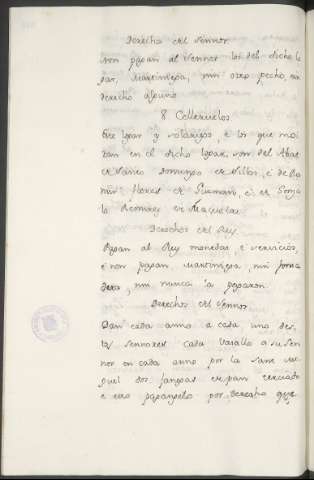 Derecho del Sennor.
Non pagan al Sennor los del dicho lo
gar, martiniega, nin otro pecho, nin
derecho alguno
8 Colleruelos
Este logar y solariego, e los que mo
ran en el dicho logar, son del Abat
de Santo Domingo de Sillos, e de Ra
mir Florez de Guzman, e de Gonza
lo Ramirez de
Derechos del Rey
Pagan al Rey monedas, e servicios,
e non pagan martiniega, nin fonsa
dera, nin nunca la pagaron.
Derechos del Sennor.
Dan cada anno a cada uno des
tos Sennores cada vasallo a su Sen
nor en cada anno por la Sant
guel dos fanegas de pan terciado
e esto paganselo por derecho que